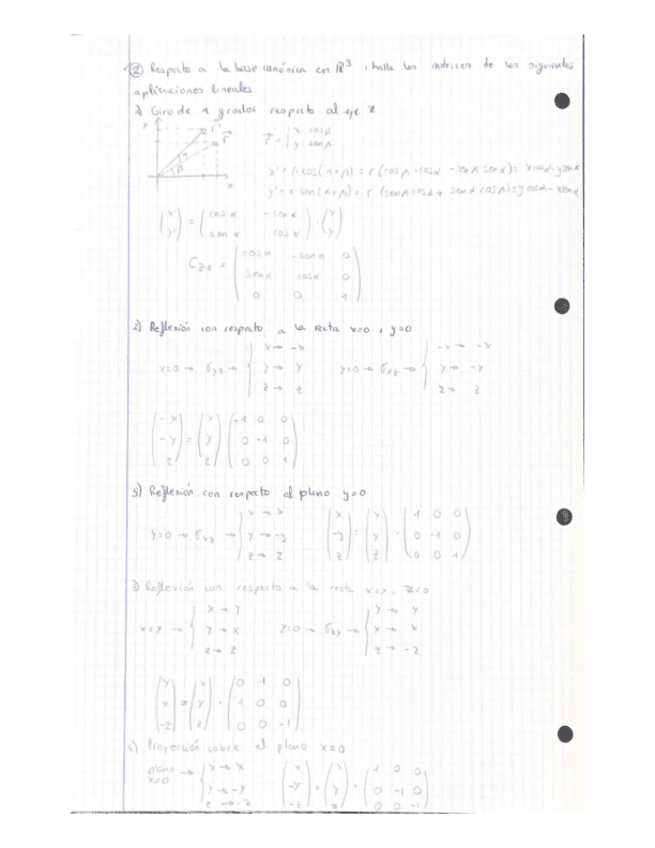 ② Respecto a la base canónica en R³, halla las matrices de las siguientes
aplicaciones lineales
1) Giro de α grados respecto al eje z
y r' r
α β x
r = { x cosβ
y senβ
x' = r·cos(α+β) = r (cosβ·cosα - senβ·senα) = xcosα-ysenα
y' = r sen(α+β) = r (senβ cosα + senα cosβ) = ycosα-xsenα
(x' y') = (cosα -senα senα cosα) · (x y)
C =
cosα -senα 0
senα cosα 0
0 0 1
2) Reflexión con respecto a la recta x=0, y=0
x→ -x -x→ -x
x=0 → σyz → { y→ y y=0 → σxz → { y→ -y
z→ z z→ z
(-x) (x) (-1 0 0)
(-y) = (y) (0 -1 0)
(z) (z) (0 0 1)
5) Reflexión con respecto al plano y=0
x → x (x) (x) (1 0 0)
y=0 → σxz → { y → -y (-y) = (y) · (0 -1 0)
z → z (z) (z) (0 0 1)
3) Reflexión con respecto a la recta x=y, z=0
x → y y → y
x=y → { y → x z=0 → σxy → { x → x
z → z z → -z
(y) (x) (0 -1 0)
(x) = (y) · (1 0 0)
(-z) (z) (0 0 -1)
4) Proyección sobre el plano x=0
plano x → x (x) (x) (1 0 0)
x=0 → { y → -y (-y) = (y) · (0 -1 0)
z → -z (-z) (z) (0 0 -1)